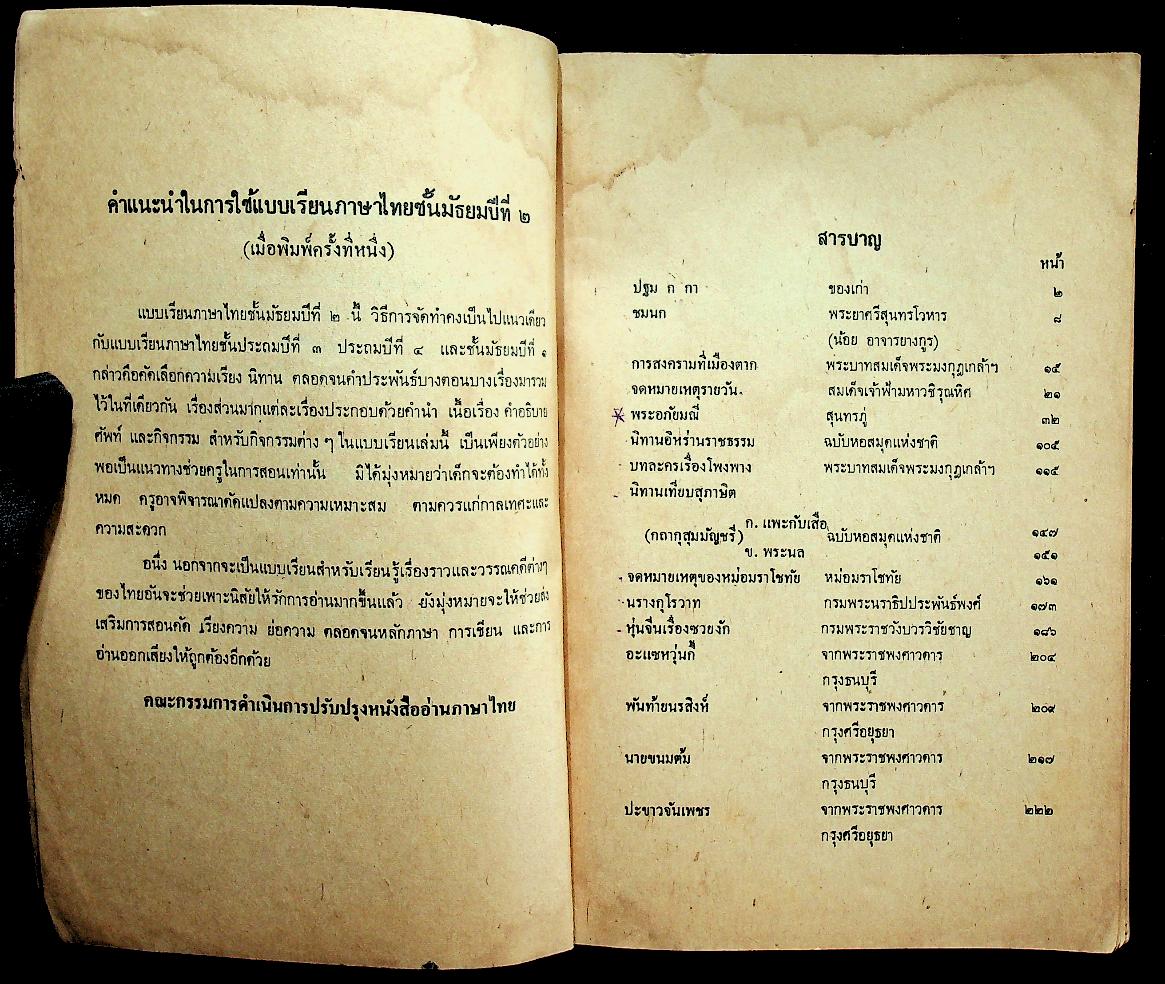 คำแนะนำในการใช้แบบเรียนภาษาไทยชั้นมัธยมปีที่ ๒
(เมื่อพิมพ์ครั้งที่หนึ่ง)
แบบเรียนภาษาไทยชั้นมัธยมปีที่ ๒ นี้ วิธีการจัดทำคงเป็นไปแนวเดียว
กับแบบเรียนภาษาไทยชั้นประถมปีที่ ๓ ประถมปีที่ ๔ และชั้นมัธยมปีที่ ๑
กล่าวคือคัดเลือกความเรียง นิทาน ตลอดจนคำประพันธ์บางตอนบางเรื่องมารวม
ไว้ในที่เดียวกัน เรื่องส่วนมากแต่ละเรื่องประกอบด้วยคำนำ เนื้อเรื่อง คำอธิบาย
ศัพท์ และกิจกรรม สำหรับกิจกรรมต่าง ๆ ในแบบเรียนเล่มนี้ เป็นเพียงตัวอย่าง
พอเป็นแนวทางช่วยครูในการสอนเท่านั้น มิได้มุ่งหมายว่าเด็กจะต้องทำได้ทั้ง
หมด ครูอาจพิจารณาดัดแปลงตามความเหมาะสม ตามควรแก่กาลเทศะและ
ความสะดวก
อนึ่ง นอกจากจะเป็นแบบเรียนสำหรับเรียนรู้เรื่องราวและวรรณคดีต่างๆ
ของไทยอันจะช่วยเพาะนิสัยให้รักการอ่านมากขึ้นแล้ว ยังมุ่งหมายจะให้ช่วยส่ง
เสริมการสอนคัด เรียงความ ย่อความ ตลอดจนหลักภาษา การเขียน และการ
อ่านออกเสียงให้ถูกต้องอีกด้วย
คณะกรรมการดำเนินการปรับปรุงหนังสืออ่านภาษาไทย
สารบาญ
หน้า
ปฐม ก กา ของเก่า ๒
ชมนก พระยาศรีสุนทรโวหาร ๘
(น้อย อาจารยางกูร)
การสงครามที่เมืองตาก พระบาทสมเด็จพระมงกุฎเกล้าฯ ๑๕
จดหมายเหตุรายวัน สมเด็จเจ้าฟ้ามหาวชิรุณหิศ ๒๑
พระอภัยมณี สุนทรภู่ ๓๒
นิทานอิหร่านราชธรรม ฉบับหอสมุดแห่งชาติ ๑๐๕
บทละครเรื่องโพงพาง พระบาทสมเด็จพระมงกุฎเกล้าฯ ๑๑๕
นิทานเทียบสุภาษิต
ก. แพะกับเสือ
(กถากุสุมมัญชรี) ฉบับหอสมุดแห่งชาติ ๑๔๗
ข. พระนล ๑๕๑
จดหมายเหตุของหม่อมราโชทัย หม่อมราโชทัย ๑๖๑
นรางกุโรวาท กรมพระนราธิปประพันธ์พงศ์ ๑๗๓
หุ่นจีนเรื่องซวยงัก กรมพระราชวังบวรวิชัยชาญ ๑๘๖
อะแซหวุ่นกี้ จากพระราชพงศาวดาร ๒๐๔
กรุงธนบุรี
พันท้ายนรสิงห์ จากพระราชพงศาวดาร ๒๐๙
กรุงศรีอยุธยา
นายขนมต้ม จากพระราชพงศาวดาร ๒๑๗
กรุงธนบุรี
ปะขาวจันเพชร จากพระราชพงศาวดาร ๒๒๒
กรุงศรีอยุธยา